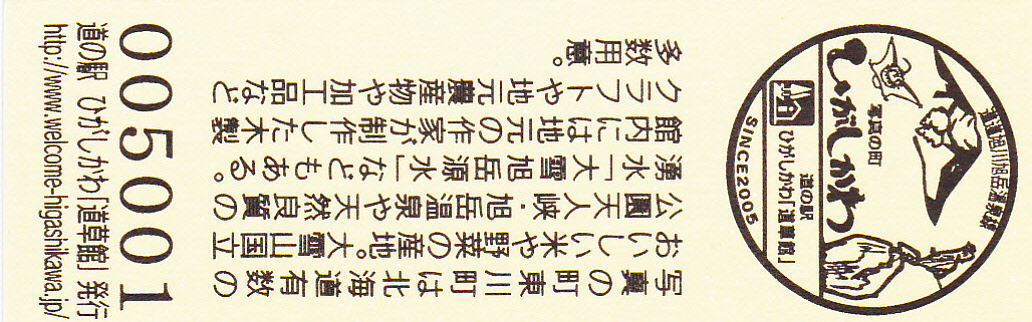 写真の町東川町は北海道有数の
おいしい米や野菜の産地。大雪山国立
公園天人峡・旭岳温泉や天然良質の
湧水「大雪旭岳源水」などもある。
館内には地元の作家が制作した木製
クラフトや地元農産物や加工品など
多数用意。
005001
道の駅 ひがしかわ「道草館」発行
http://www.welcome-higashikawa.jp/
ひがしかわ
写真の町
道の駅
ひがしかわ「道草館」
SINCE2005